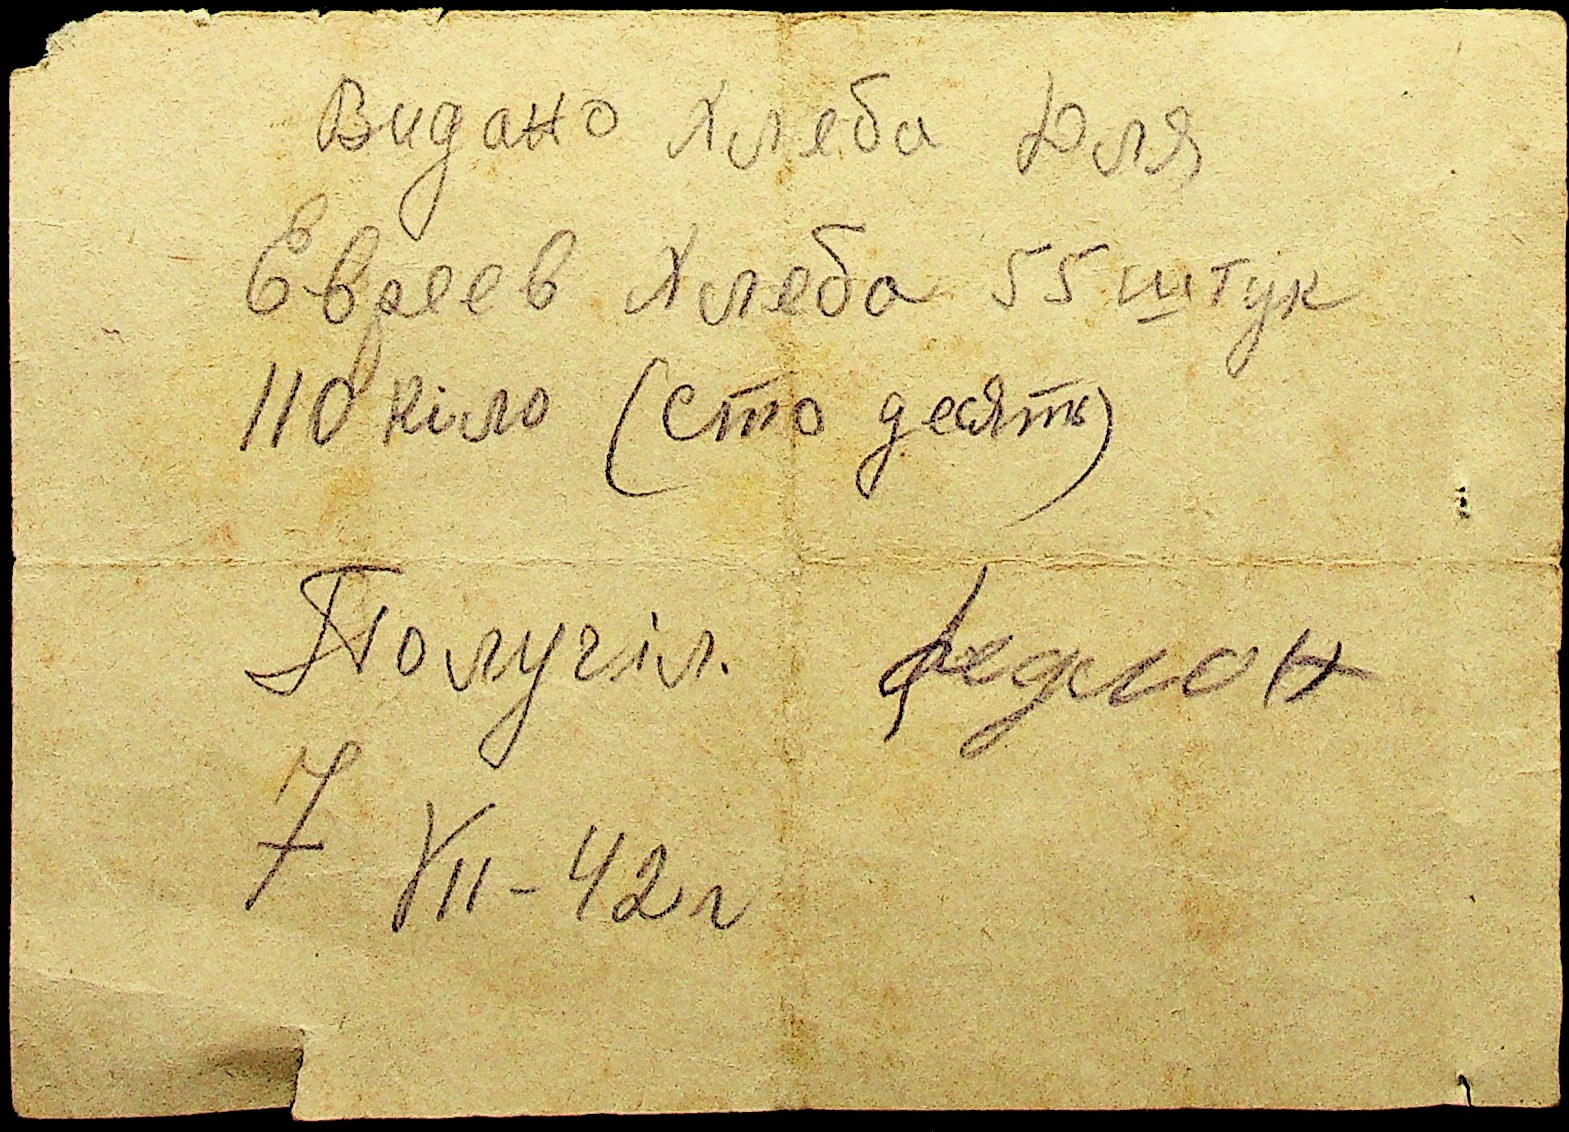 Видано хлеба для
Евреев хлеба 55 штук
110 кіло (сто десять)
Получіл.
7 VII-42 г